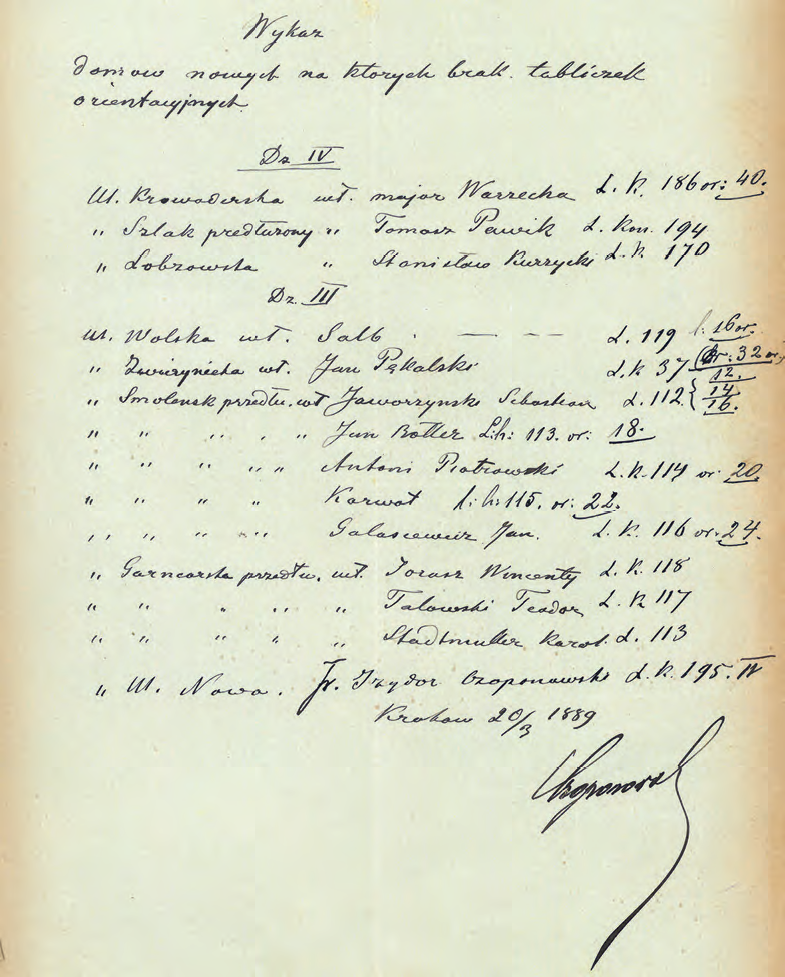 Wykaz
domow nowych na ktorych brak tabliczek
orientacyjnych.
Dz IV
Ul. Krowoderska wł. major Warzecha L. K. 186 or: 40.
" Szlak przedłużony " Tomasz Pawik L. Kon. 194
" Łobzowska " Stanisław Kurzycki L. K. 170
Dz. III
Ul. Wolska wł. Salb . — — — L. 119 l: 16 or.
" Zwierzyniecka wł. Jan Pękalski L. K 37 (or: 32 or.
12.
" Smoleńsk przedłu. wł Jaworzynski Sebastian L. 112 { 14
16.
" " " " " Jan Rotter L: h: 113. or: 18.
" " " " " Antoni Piotrowski L. K. 114 or 20
" " " " Karwat l: h: 115. or: 22.
" " " " " Galasiewicz Jan. L. K. 116 or. 24.
" Garncarska przedłu. wł. Jorasz Wincenty L. K. 118
" " " " " Talowski Teodor L. K 117
" " " " " Stadtmuller Karol. L. 113
" Ul. Nowa . Fr. Izydor Czaponowski L. K. 195. IV
Krakow 20/3 1889